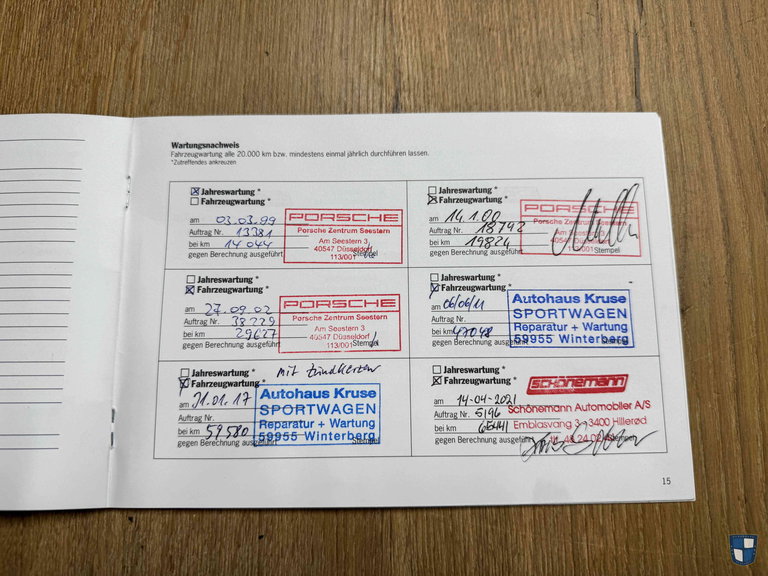 Wartungsnachweis
Fahrzeugwartung alle 20.000 km bzw. mindestens einmal jährlich durchführen lassen.
*Zutreffendes ankreuzen
Jahreswartung *
Fahrzeugwartung *
am 03.03.99
Auftrag Nr. 13381
bei km 14 044
gegen Berechnung ausgeführt
Stempel
PORSCHE
Porsche Zentrum Seestern
Am Seestern 3
40547 Düsseldorf
113/001
Jahreswartung *
Fahrzeugwartung *
am 14.1.00
Auftrag Nr. 18792
bei km 19824
gegen Berechnung ausgeführt
Stempel
PORSCHE
Porsche Zentrum Seestern
Jahreswartung *
Fahrzeugwartung *
am 27.09.02
Auftrag Nr. 38229
bei km 29627
gegen Berechnung ausgeführt
Stempel
PORSCHE
Porsche Zentrum Seestern
Am Seestern 3
40547 Düsseldorf
113/001
Jahreswartung *
Fahrzeugwartung *
am 06/06/11
Auftrag Nr.
bei km 47048
gegen Berechnung ausgeführt
Autohaus Kruse
SPORTWAGEN
Reparatur + Wartung
59955 Winterberg
Jahreswartung * mit Zündkerzen
Fahrzeugwartung *
am 31.01.17
Auftrag Nr.
bei km 59580
gegen Berechnung ausgeführt
Stempel
Autohaus Kruse
SPORTWAGEN
Reparatur + Wartung
59955 Winterberg
Jahreswartung *
Fahrzeugwartung *
am 14-04-2021
Auftrag Nr. 5196
bei km
gegen Berechnung ausgeführt
Stempel
SCHÖNEMANN
Schönemann Automobiler A/S
Emblasvang 3 - 3400 Hillerød
15